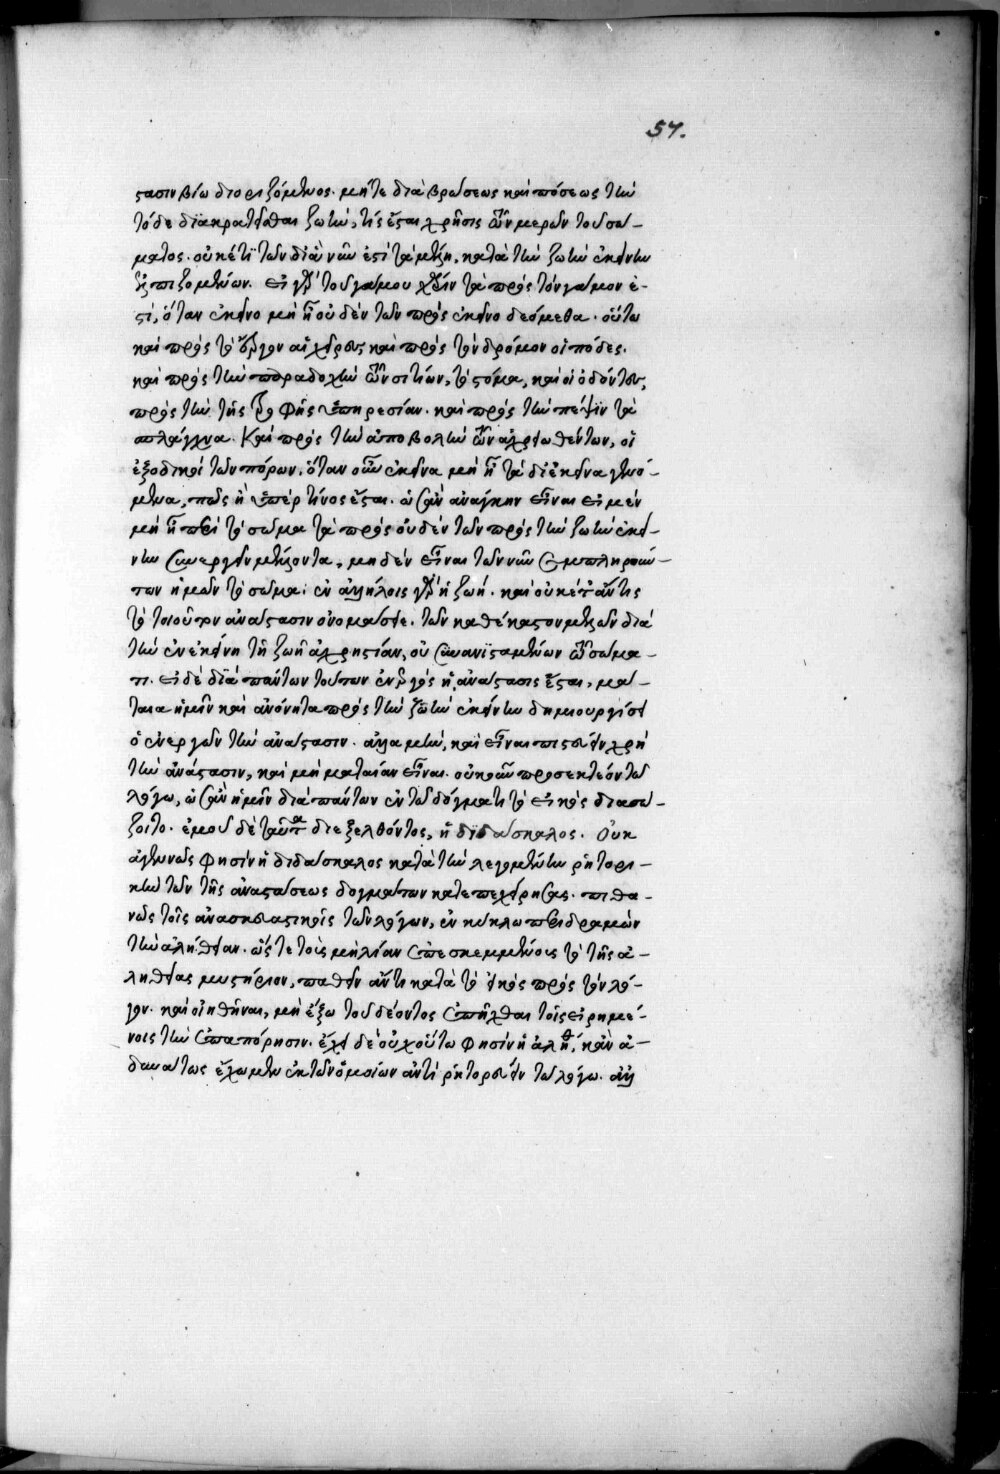 57.
στασιν βίω διοριζόμενος. μήτε διὰ βρώσεως καὶ πόσεως τὴν
τό δε διακρατεῖσθαι ζωὴν, τίς ἔσται χρῆσις τῶν μερῶν τοῦ σώ-
ματος. οὐκέτι τῶν δι' ἃ νῦν ἐστὶ τὰ μέλη, κατὰ τὴν ζωὴν ἐκείνην
ἐλπιζομένων. εἰ γὰρ τοῦ γάμου χάριν τὰ πρὸς τὸν γάμον ἐ-
στί, ὅταν ἐκεῖνο μὴ ἦ οὐδὲν τῶν πρὸς ἐκεῖνο δεόμεθα. οὕτω
καὶ πρὸς τὸ ἔργον αἱ χεῖρες καὶ πρὸς τὸν δρόμον οἱ πόδες.
καὶ πρὸς τὴν παραδοχὴν τῶν σιτίων, τὸ στόμα, καὶ οἱ ὀδόντες,
πρὸς τὴν τῆς τροφῆς ὑπηρεσίαν. καὶ πρὸς τὴν πέψιν τὰ
σπλάγχνα. Καὶ πρὸς τὴν ἀποβολὴν τῶν ἀχρειωθέντων, οἱ
ἐξοδικοὶ τῶν πόρων. ὅταν οὖν ἐκεῖνα μὴ ἦ τὰ δι' ἐκεῖνα γενό-
μενα, πῶς ἢ ὑπὲρ τίνος ἔσται. ὡς ἂν ἀνάγκην εἶναι εἰ μὲν
μὴ ἦ περὶ τὸ σῶμα τὰ πρὸς οὐδὲν τῶν πρὸς τὴν ζωὴν ἐκεί-
νην συνεργεῖν μέλλοντα, μηδὲν εἶναι τῶν νῦν συμπληρούν-
των ἡμῶν τὸ σῶμα. ἐν ἄλλοις γὰρ ἡ ζωή. καὶ οὐκέτ' ἄν τις
τὸ τοιοῦτον ἀνάστασιν ὀνομάσειε. τῶν καθέκαστον μελῶν διὰ
τὴν ἐν ἐκείνη τῆ ζωῆ ἀχρηστίαν, οὐ συνανισταμένων τῶ σώμα-
τι. εἰ δὲ διὰ πάντων τούτων ἐνεργὸς ἡ ἀνάστασις ἔσται, μά-
ταια ἡμῖν καὶ ἀνόνητα πρὸς τὴν ζωὴν ἐκείνην δημιουργήσει
ὁ ἐνεργῶν τὴν ἀνάστασιν. ἀλλὰ μὴν, καὶ εἶναι πιστεύειν χρὴ
τὴν ἀνάστασιν, καὶ μὴ ματαίαν εἶναι. οὐκοῦν προσεκτέον τῶ
λόγω, ὡς ἂν ἡμῖν διὰ πάντων ἐν τῶ δόγματι τὸ εἰκὸς διασώ-
ζοιτο. ἐμοῦ δὲ ταῦτα διεξελθόντος, ἡ διδάσκαλος. Οὐκ
ἀγεννῶς φησὶν ἡ διδάσκαλος κατὰ τὴν λεγομένην ῥητορι-
κὴν τῶν τῆς ἀναστάσεως δογμάτων κατεπεχείρησας. πιθα-
νῶς τοῖς ἀνασκευαστικοῖς τῶν λόγων, ἐν κύκλω περιδραμὼν
τὴν ἀλήθειαν. ὥς τε τοὺς μὴ λίαν ἐπεσκεμμένους τὸ τῆς ἀ-
ληθείας μυστήριον, παθεῖν ἄν τι κατὰ τὸ εἰκὸς πρὸς τὸν λό-
γον. καὶ οἰηθῆναι, μὴ ἔξω τοῦ δέοντος ἐπῆχθαι τοῖς εἰρημέ-
νοις τὴν ἐπαπόρησιν. ἔχει δὲ οὐχ οὕτω φησὶν ἡ ἀλήθ, κἂν ἀ-
δυνάτως ἔχωμεν ἐκ τῶν ὁμοίων ἀντιρητορεύειν τῶ λόγω. ἀλλ